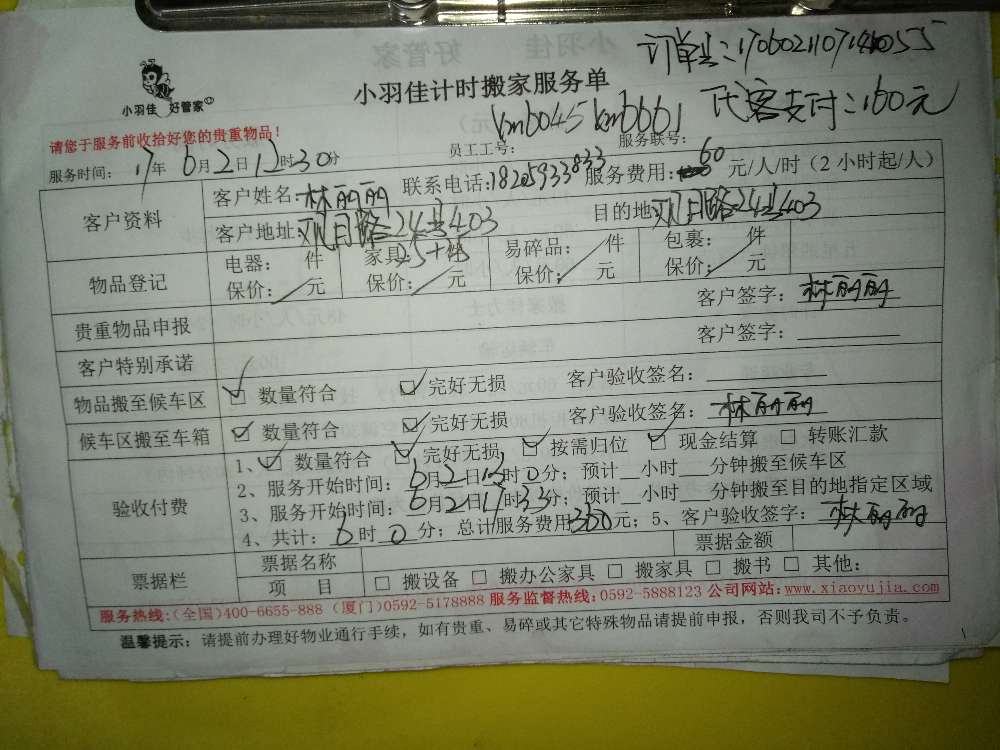 小羽佳 好管家
小羽佳计时搬家服务单
代客支付：160元
xm6045 xm6661
请您于服务前收拾好您的贵重物品！
服务时间： 17年 6月 2日 12时30分 员工工号： 服务联号：
客户资料 客户姓名：林丽丽 联系电话：18205933833 服务费用： 60 元/人/时（2小时起/人）
客户地址：观日路24号403 目的地 观日路24号403
物品登记 电器： 件 家具 25+件 易碎品： 件 包裹： 件
保价： 元 保价： 元 保价： 元 保价： 元
贵重物品申报 客户签字：林丽丽
客户特别承诺 客户签字：
物品搬至候车区 ☑ 数量符合 ☑ 完好无损 客户验收签名：
候车区搬至车箱 ☑ 数量符合 ☑ 完好无损 客户验收签名：林丽丽
验收付费 1、☑ 数量符合 ☑ 完好无损 ☑ 按需归位 ☑ 现金结算 □ 转账汇款
2、服务开始时间：6月2日 时0分；预计__小时___分钟搬至候车区
3、服务开始时间：6月2日17时33分；预计__小时___分钟搬至目的地指定区域
4、共计：6时 0 分；总计服务费用 360元；5、客户验收签字：林丽丽
票据栏 票据名称 票据金额
项 目 □ 搬设备 □ 搬办公家具 □ 搬家具 □ 搬书 □ 其他：
服务热线：(全国)400-6655-888 (厦门)0592-5178888 服务监督热线：0592-5888123 公司网站：www.xiaoyujia.com
温馨提示：请提前办理好物业通行手续，如有贵重、易碎或其它特殊物品请提前申报，否则我司不予负责。